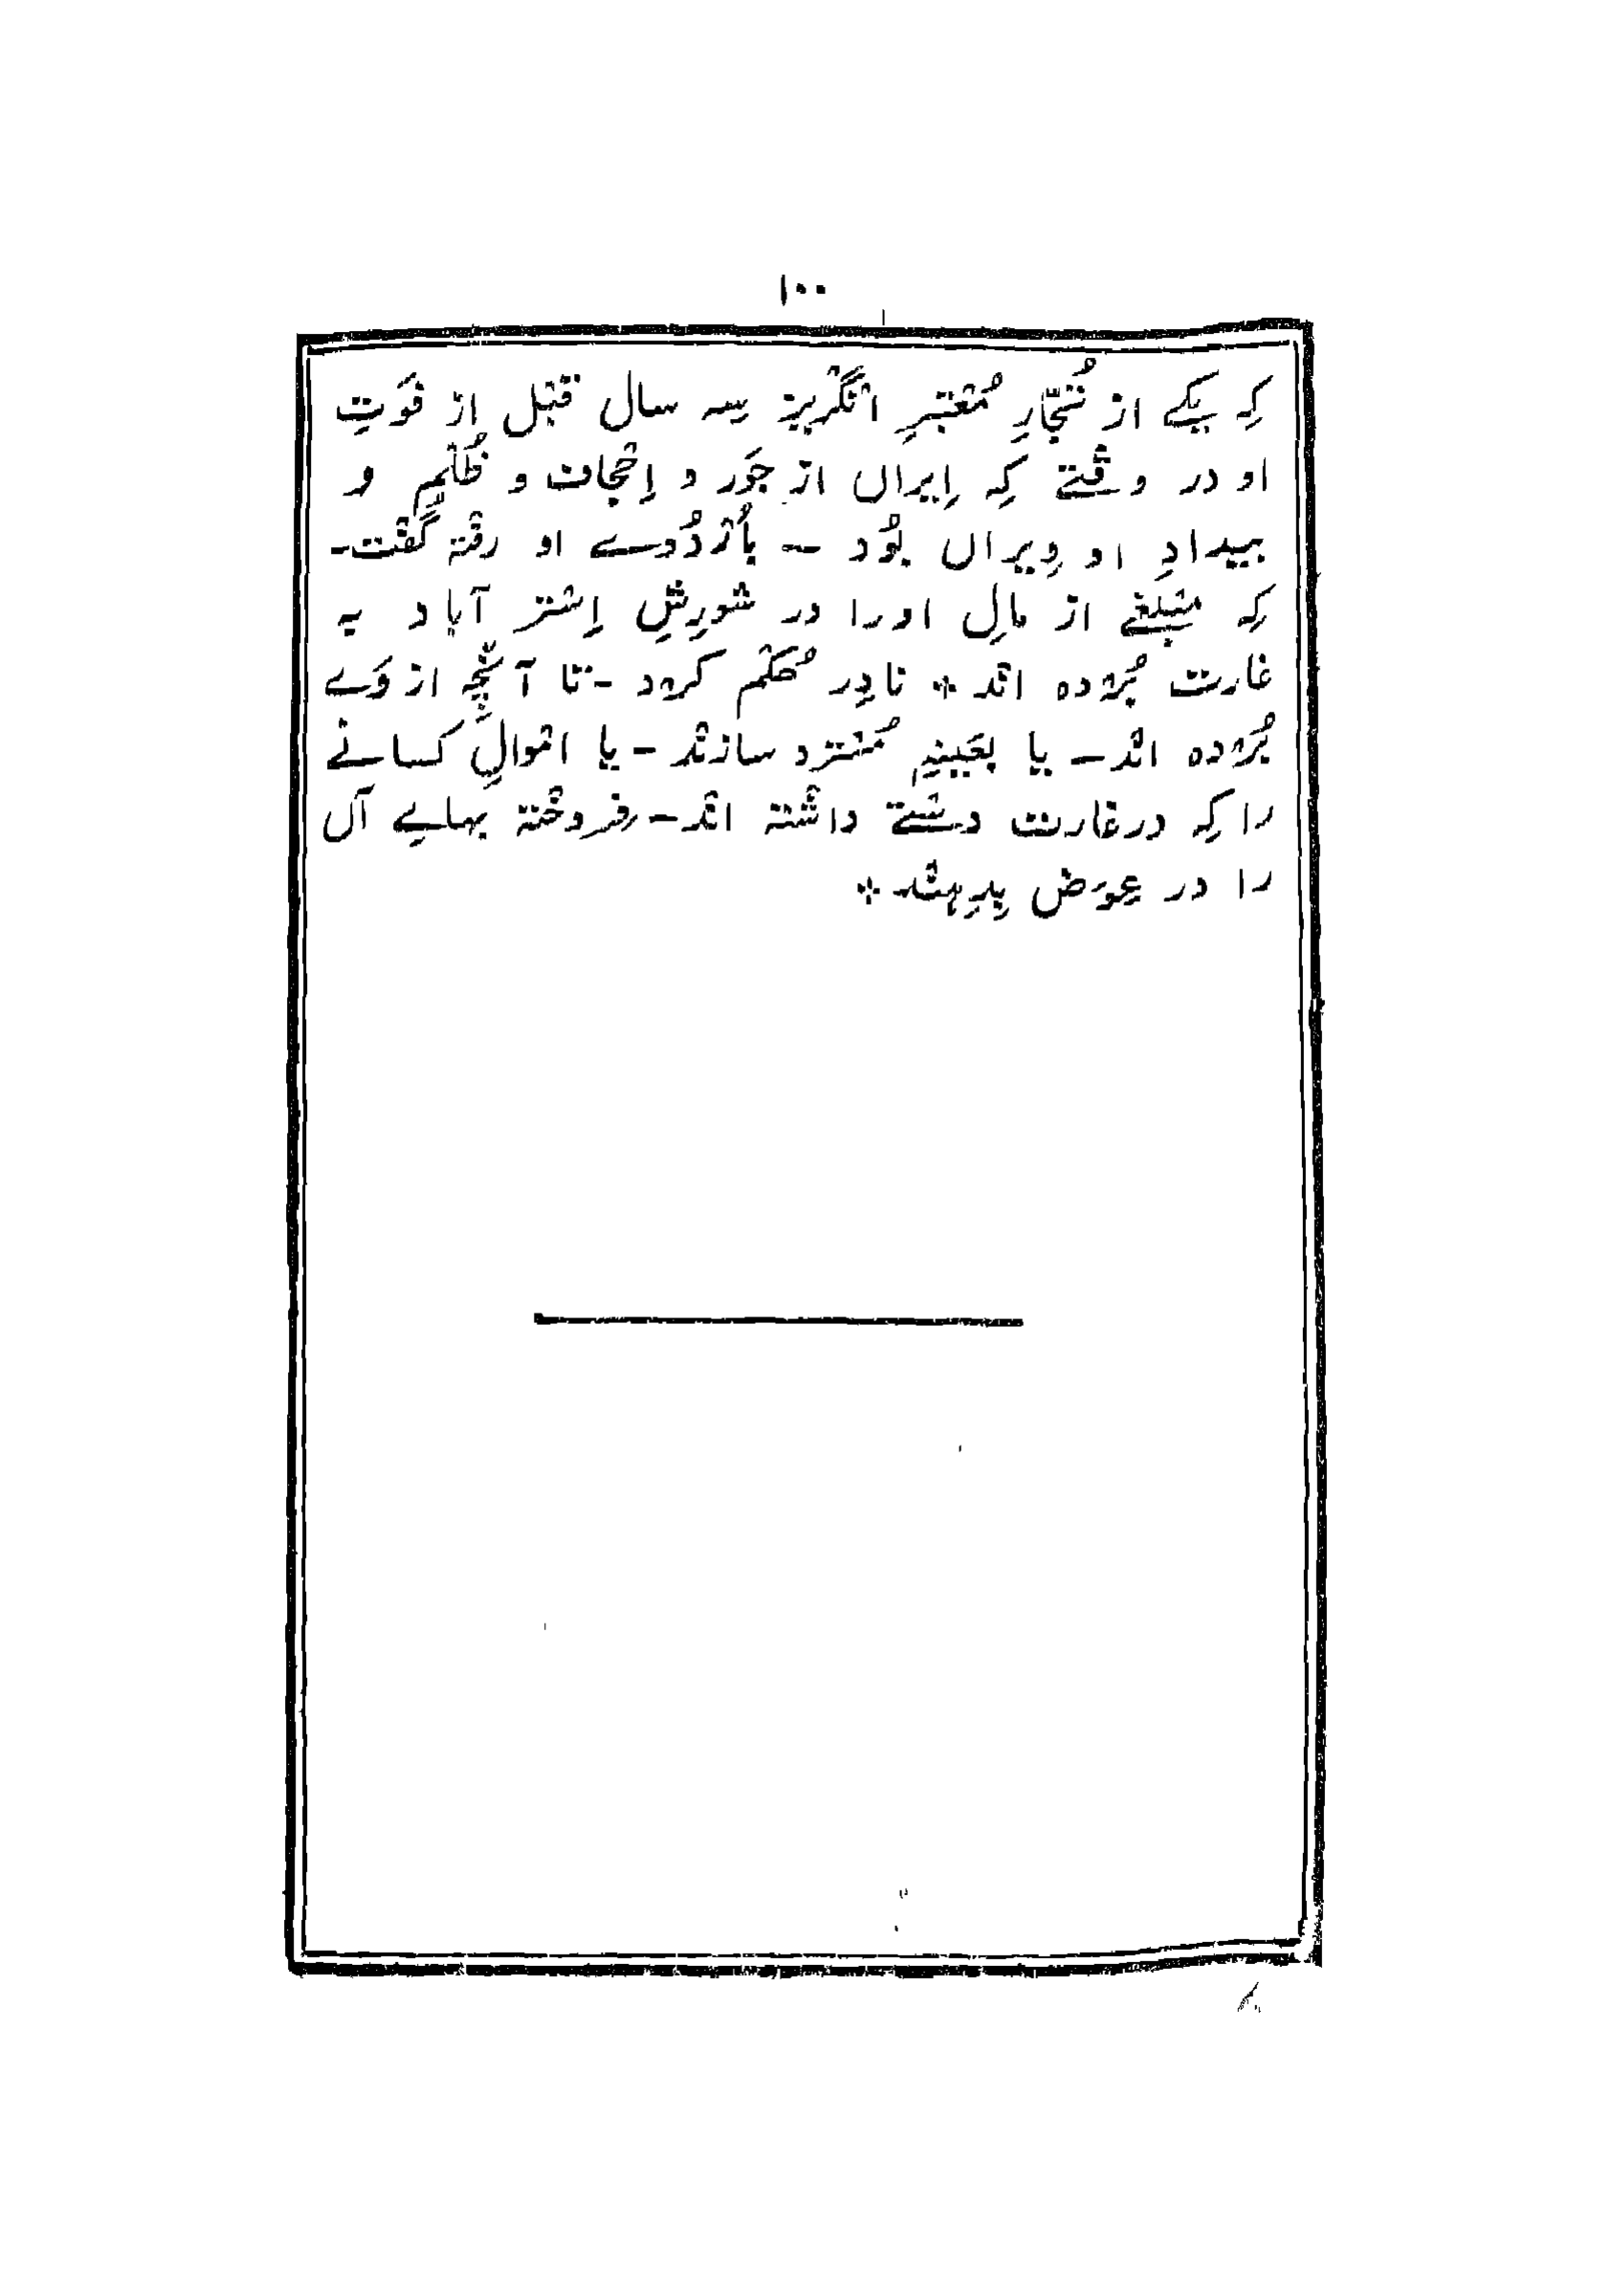 ۱۰۰
کِہ یکے از تُجّارِ مُعْتبرِ انْگْریز سِہ سال قبْل از فَوتِ
او در وقْتے کِہ اِیراں از جَور و اِجْحاف و ظُلْم و
بیدادِ او وِیراں بُود — بأُرْدُوے او رفْتہ گُفْت-
کِہ مبْلغے از مالِ اورا در شورِشِ اِسْتر آباد بہ
غارت بُرْدہ انْد * نادِر حُکْم کرْد - تا آنْچِہ از وَے
بُرْدہ انْد — یا بعَینِہٖ مُسْترد سازنْد - یا امْوالِ کسانے
را کِہ در غارت دسْتے داشْتہ انْد - فروخْتہ بہاے آں
را در عِوَض بِدِہنْد *